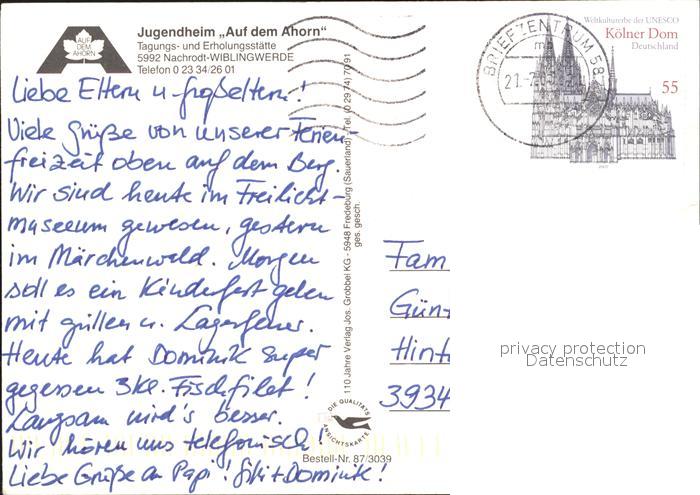 AUF DEM AHORN
Jugendheim „Auf dem Ahorn“
Tagungs- und Erholungsstätte
5992 Nachrodt-WIBLINGWERDE
Telefon 0 23 34/26 01
Liebe Eltern u. Großeltern!
Viele Grüße von unserer Ferien-
freizeit oben auf dem Berg.
Wir sind heute im Freilicht-
museeum gewesen, gestern
im Märchenwald. Morgen
soll es ein Kinderfest geben
mit grillen u. Lagerfeuer.
Heute hat Dominik super
gegessen 3 Kl. Fischfilet!
Langsam wird's besser.
Wir hören uns telefonisch!
Liebe Grüße an Papi! + Dominik!
110 Jahre Verlag Jos. Grobbel KG - 5948 Fredeburg (Sauerland) - Tel. (0 29 74) 70 91
ges. gesch.
DIE QUALITÄTS
ANSICHTSKARTE
Bestell-Nr. 87/3039
BRIEFZENTRUM 58
ma
21.-7.
Weltkulturerbe der UNESCO
Kölner Dom
Deutschland
55
Fam
Gün
Hint
3934
privacy protection
Datenschutz